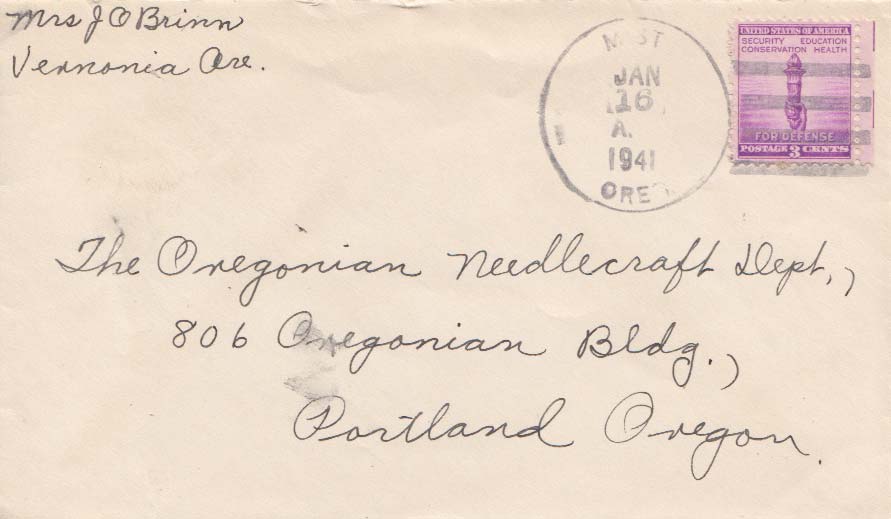 Mrs J O Brinn
Vernonia Ore.
MIST
JAN
16
A.
1941
OREG
UNITED STATES OF AMERICA
SECURITY EDUCATION
CONSERVATION HEALTH
FOR DEFENSE
POSTAGE 3 CENTS
The Oregonian Needlecraft Dept.,
806 Oregonian Bldg.,
Portland Oregon.